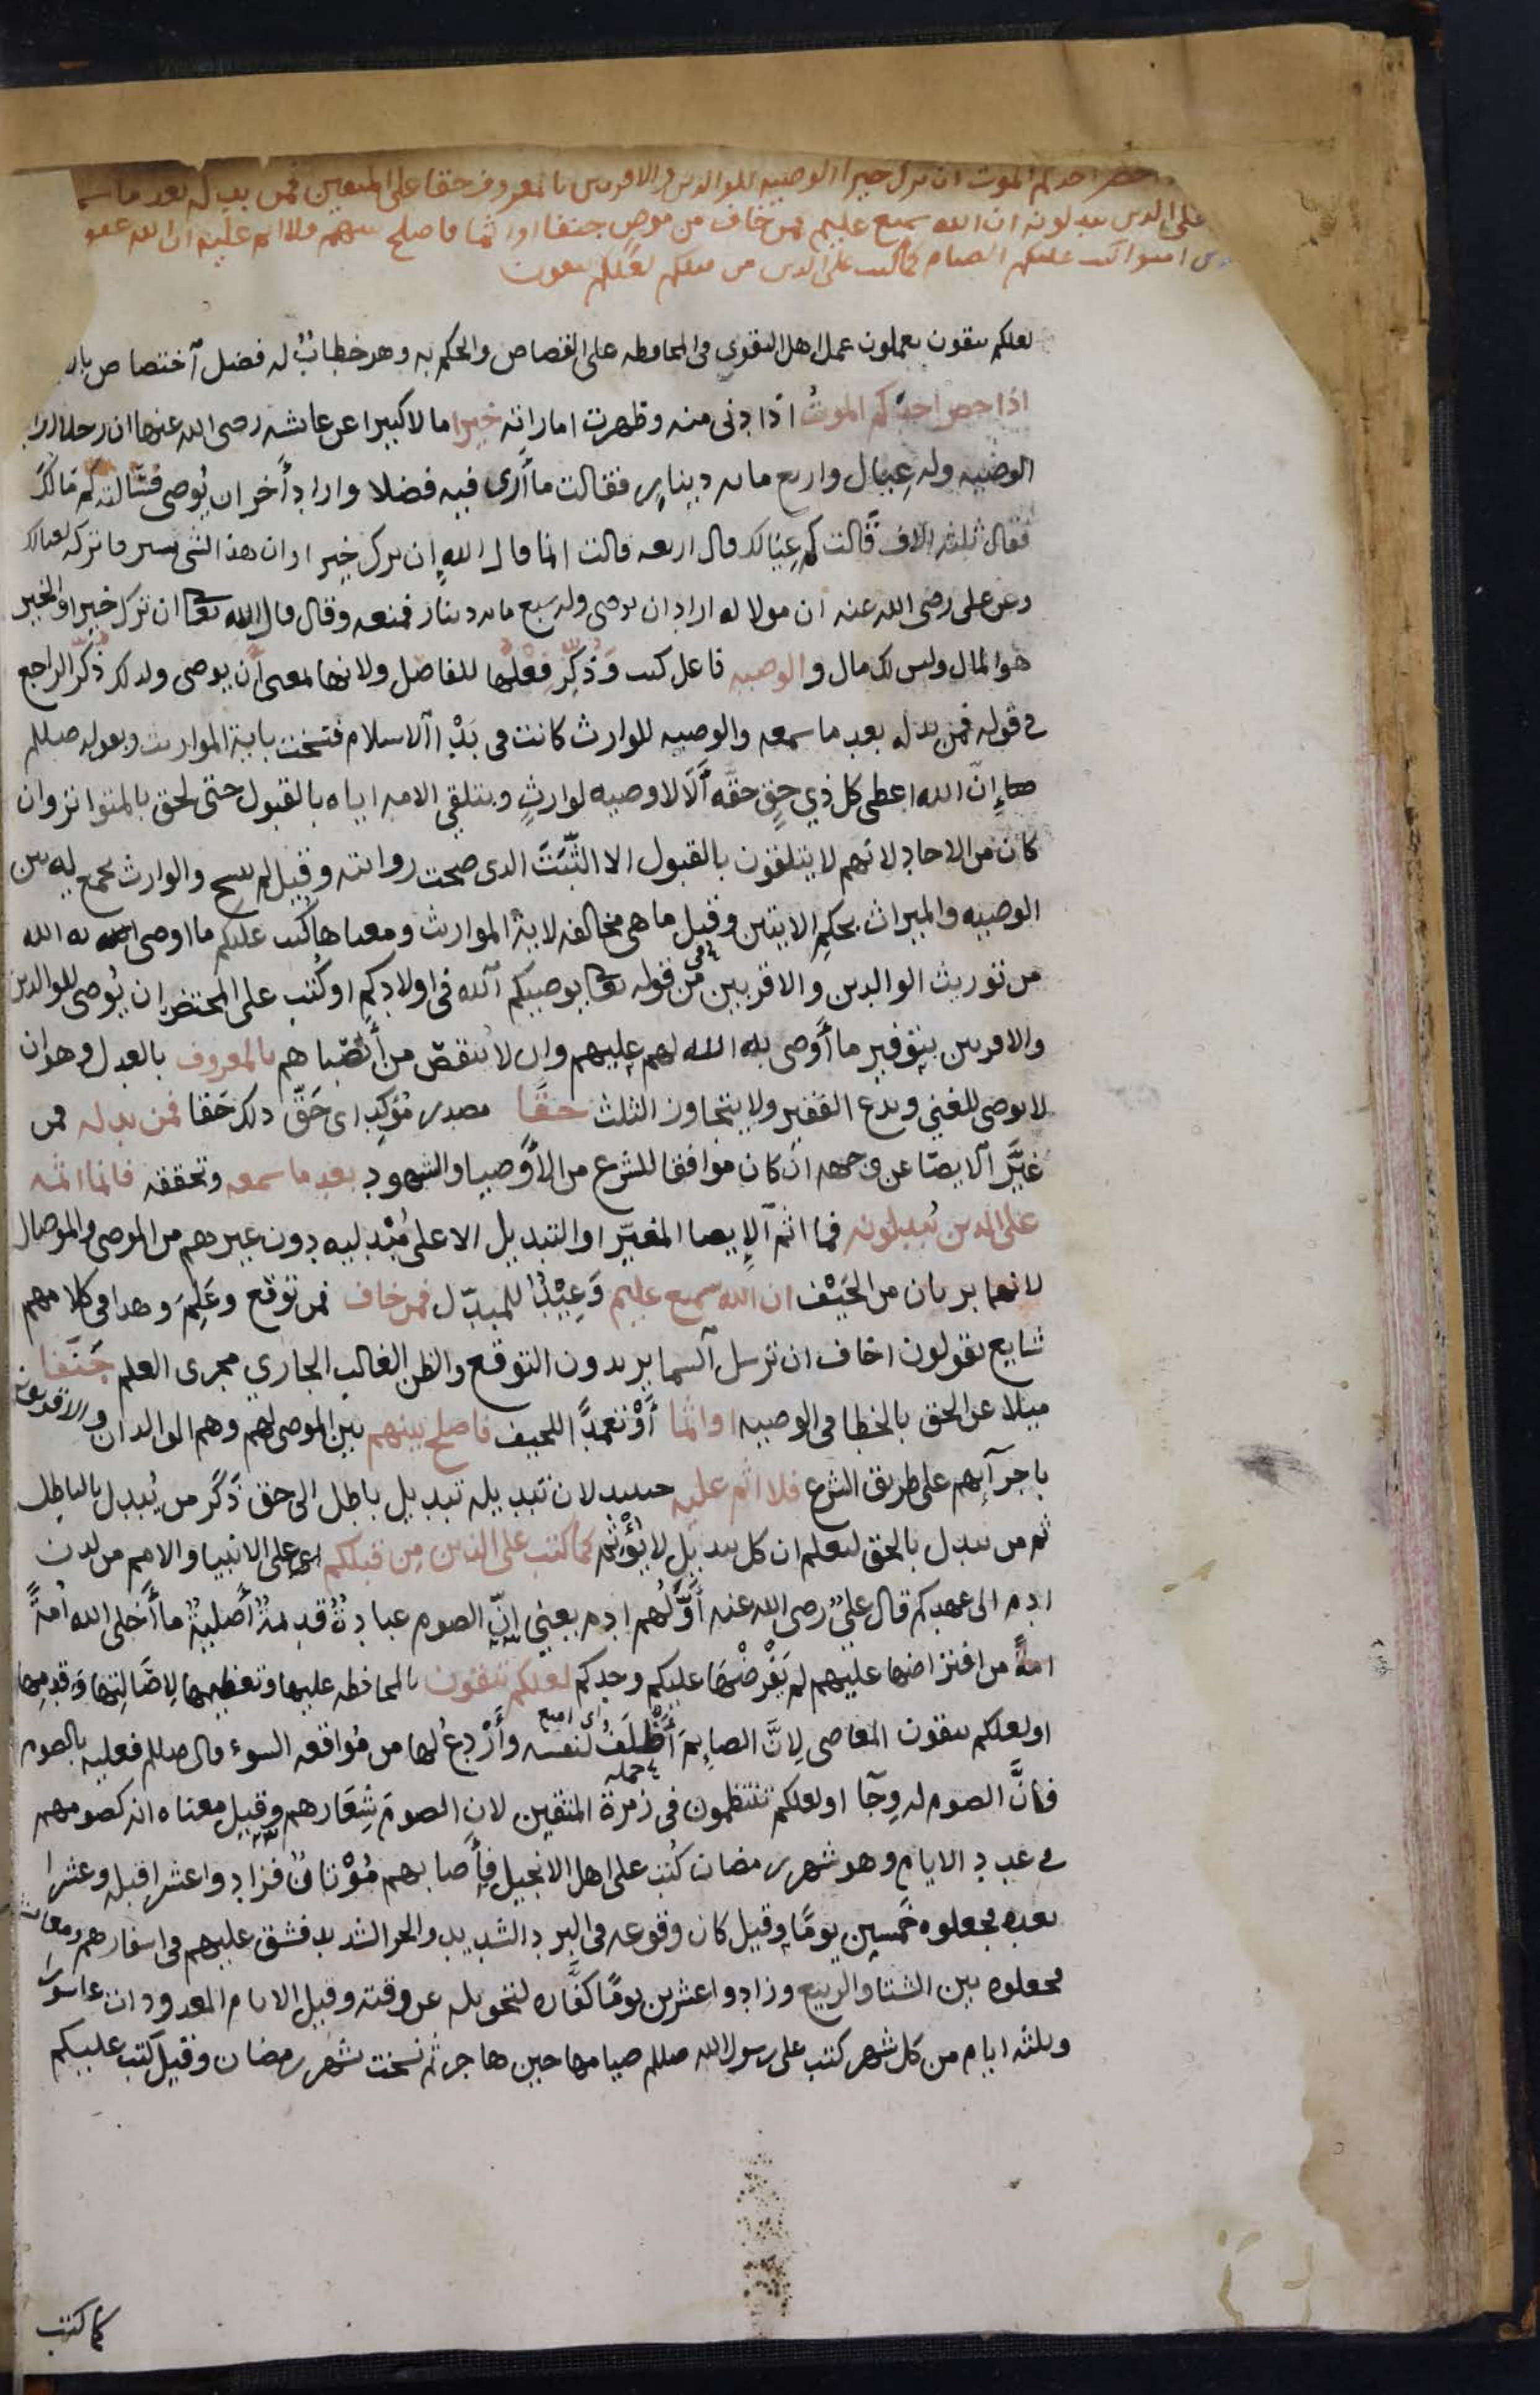 حضر احدكم الموت ان ترك خيرا الوصيه للوالدين والاقربين بالمعروف حقا على المتقين فمن بدله بعد ما سمعه
على الدين يبدلونه ان الله سميع عليم فمن خاف من موص جنفا او اثما فاصلح بينهم فلا اثم عليه ان الله غفو
امنوا كتب عليكم الصيام كما كتب على الدين من قبلكم لعلكم تتقون
لعلكم تتقون تعملون عمل اهل التقوى فى المحافظه على القصاص والحكم به وهو خطاب له فضل اختصاص
اذا حضر احدكم الموت اذا دنى منه وظهرت اماراته خيرا مالا كبيرا عن عايشه رضى الله عنها ان رجلا اراد
الوصيه وله عيال واربع مايه دينار فقالت ما ارى فيه فضلا واراد اخر ان يوصى فسالته كم مالك
فقال ثلثه الاف قالت كم عيالك قال اربعه قالت انما قال الله ان ترك خيرا وان هذا الشى يسير فاتركه لعيالك
وعن على رضى الله عنه ان مولا له اراد ان يوصى وله سبع مايه دينار فمنعه وقال قال الله تعا ان ترك خيرا والخير
هو المال وليس لك مال والوصيه فاعل كتب وذكر فعلها للفاصل ولانها بمعنى ان يوصى ولدلك ذكر الراجع
فى قوله فمن بدله بعد ما سمعه والوصيه للوارث كانت فى بدء الاسلام فنسخت باية المواريث وبقوله صللم
ان الله اعطى كل ذي حق حقه الا لا وصيه لوارث وبتلقى الامه اياه بالقبول حتى لحق بالمتواتر وان
كان من الاحاد لانهم لا يتلقون بالقبول الا الثبت الدى صحت روايته وقيل لم ينسخ والوارث يجمع له بين
الوصيه والميراث بحكم الايتين وقيل ما هى مخالفه لاية المواريث ومعناها كتب عليكم ما اوصى به الله
من توريث الوالدين والاقربين من قوله تعا يوصيكم الله فى اولادكم او كتب على المحتضر ان يوصى للوالدين
والاقربين بتوفير ما اوصى به الله لهم عليهم وان لا ينقص من انصباهم بالمعروف بالعدل وهو ان
لا يوصى للغني ويدع الفقير ولا يتجاوز الثلث حقا مصدر مؤكد اى حق دلك حقا فمن بدله فمن
غير الايصا عن وجهه ان كان موافقا للشرع من الاوصيا والشهود بعد ما سمعه وتحققه فانما اثمه
على الدين يبدلونه فما اثم الايصا المغير او التبديل الا على مبدليه دون غيرهم من الموصى والموصا له
لانهما بريان من الحيف ان الله سميع عليم وعيد للمبدل فمن خاف فمن توقع وعلم وهدا فى كلامهم
شايع يقولون اخاف ان ترسل السما يريدون التوقع والظن الغالب الجاري مجرى العلم جنفا
ميلا عن الحق بالخطا فى الوصيه او اثما او تعمدا للحيف فاصلح بينهم بين الموصى لهم وهم الوالدان والاقربون
باجرآيهم على طريق الشرع فلا اثم عليه حينيد لان تبديله تبديل باطل الى حق ذكر من يبدل بالباطل
ثم من يبدل بالحق ليعلم ان كل تبديل لا يؤثم كما كتب على الذين من قبلكم اى على الانبيا والامم من لدن
ادم الى عهدكم قال على رضى الله عنه اولهم ادم يعني ان الصوم عبادة قديمة اصلية ما اخلى الله امة
امة من افتراضها عليهم لم يفرضها عليكم وحدكم لعلكم تتقون بالمحافظه عليها وتعظيمها لاصالتها وقدمها
او لعلكم تتقون المعاصى لان الصايم اظلف اى امنع لنفسه واردع لها من مواقعه السوء قال صللم فعليه بالصوم
فان الصوم له وجآ او لعلكم تنتظمون فى زمرة جمله المتقين لان الصوم شعارهم وقيل معناه انه كصومهم
فى عدد الايام وهو شهر رمضان كتب على اهل الانجيل فاصابهم مؤتان فزادوا عشرا قبله وعشرا
بعده فجعلوه خمسين يوما وقيل كان وقوعه فى البرد الشديد والحر الشديد فشق عليهم فى اسفارهم ومعايش
فجعلوه بين الشتا والربيع وزادوا عشرين يوما كفاره لتحويله عن وقته وقيل الايام المعدودات عاشورا
وثلثه ايام من كل شهر كتب على رسول الله صللم صيامها حين هاجر ثم نسخت بشهر رمضان وقيل كتب عليكم
كما كتب